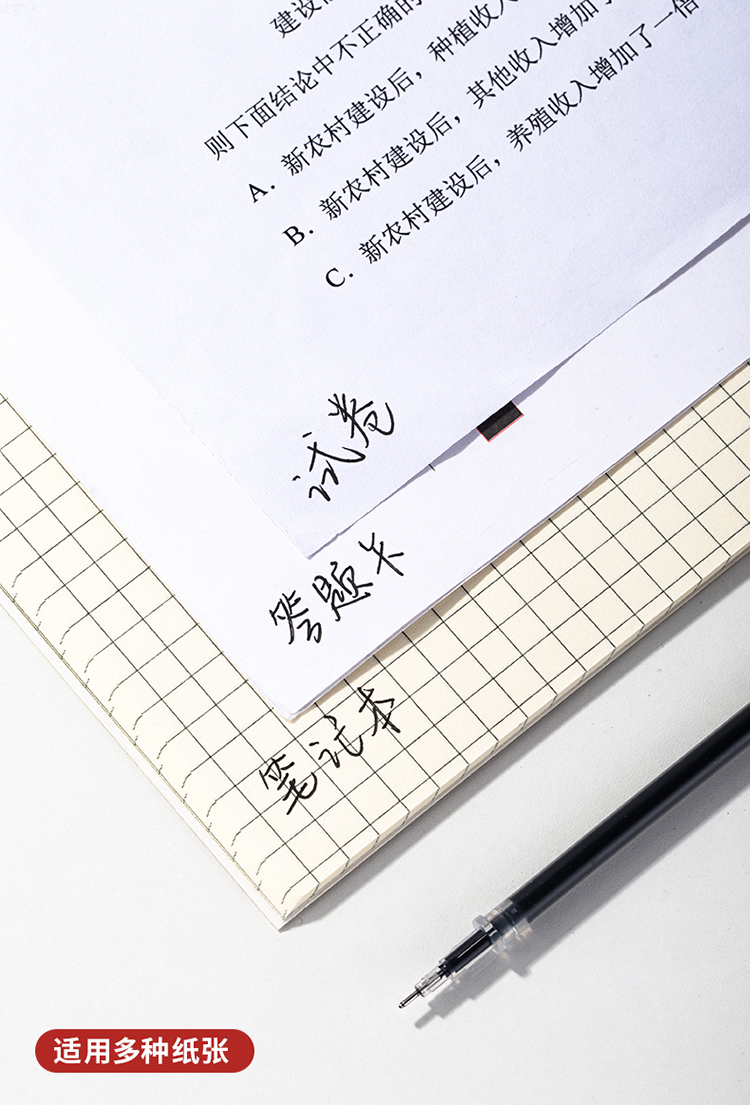 建设
则下面结论中不正确的
A. 新农村建设后，种植收入
B. 新农村建设后，其他收入增加了
C. 新农村建设后，养殖收入增加了一倍
试卷
答题卡
笔记本
适用多种纸张